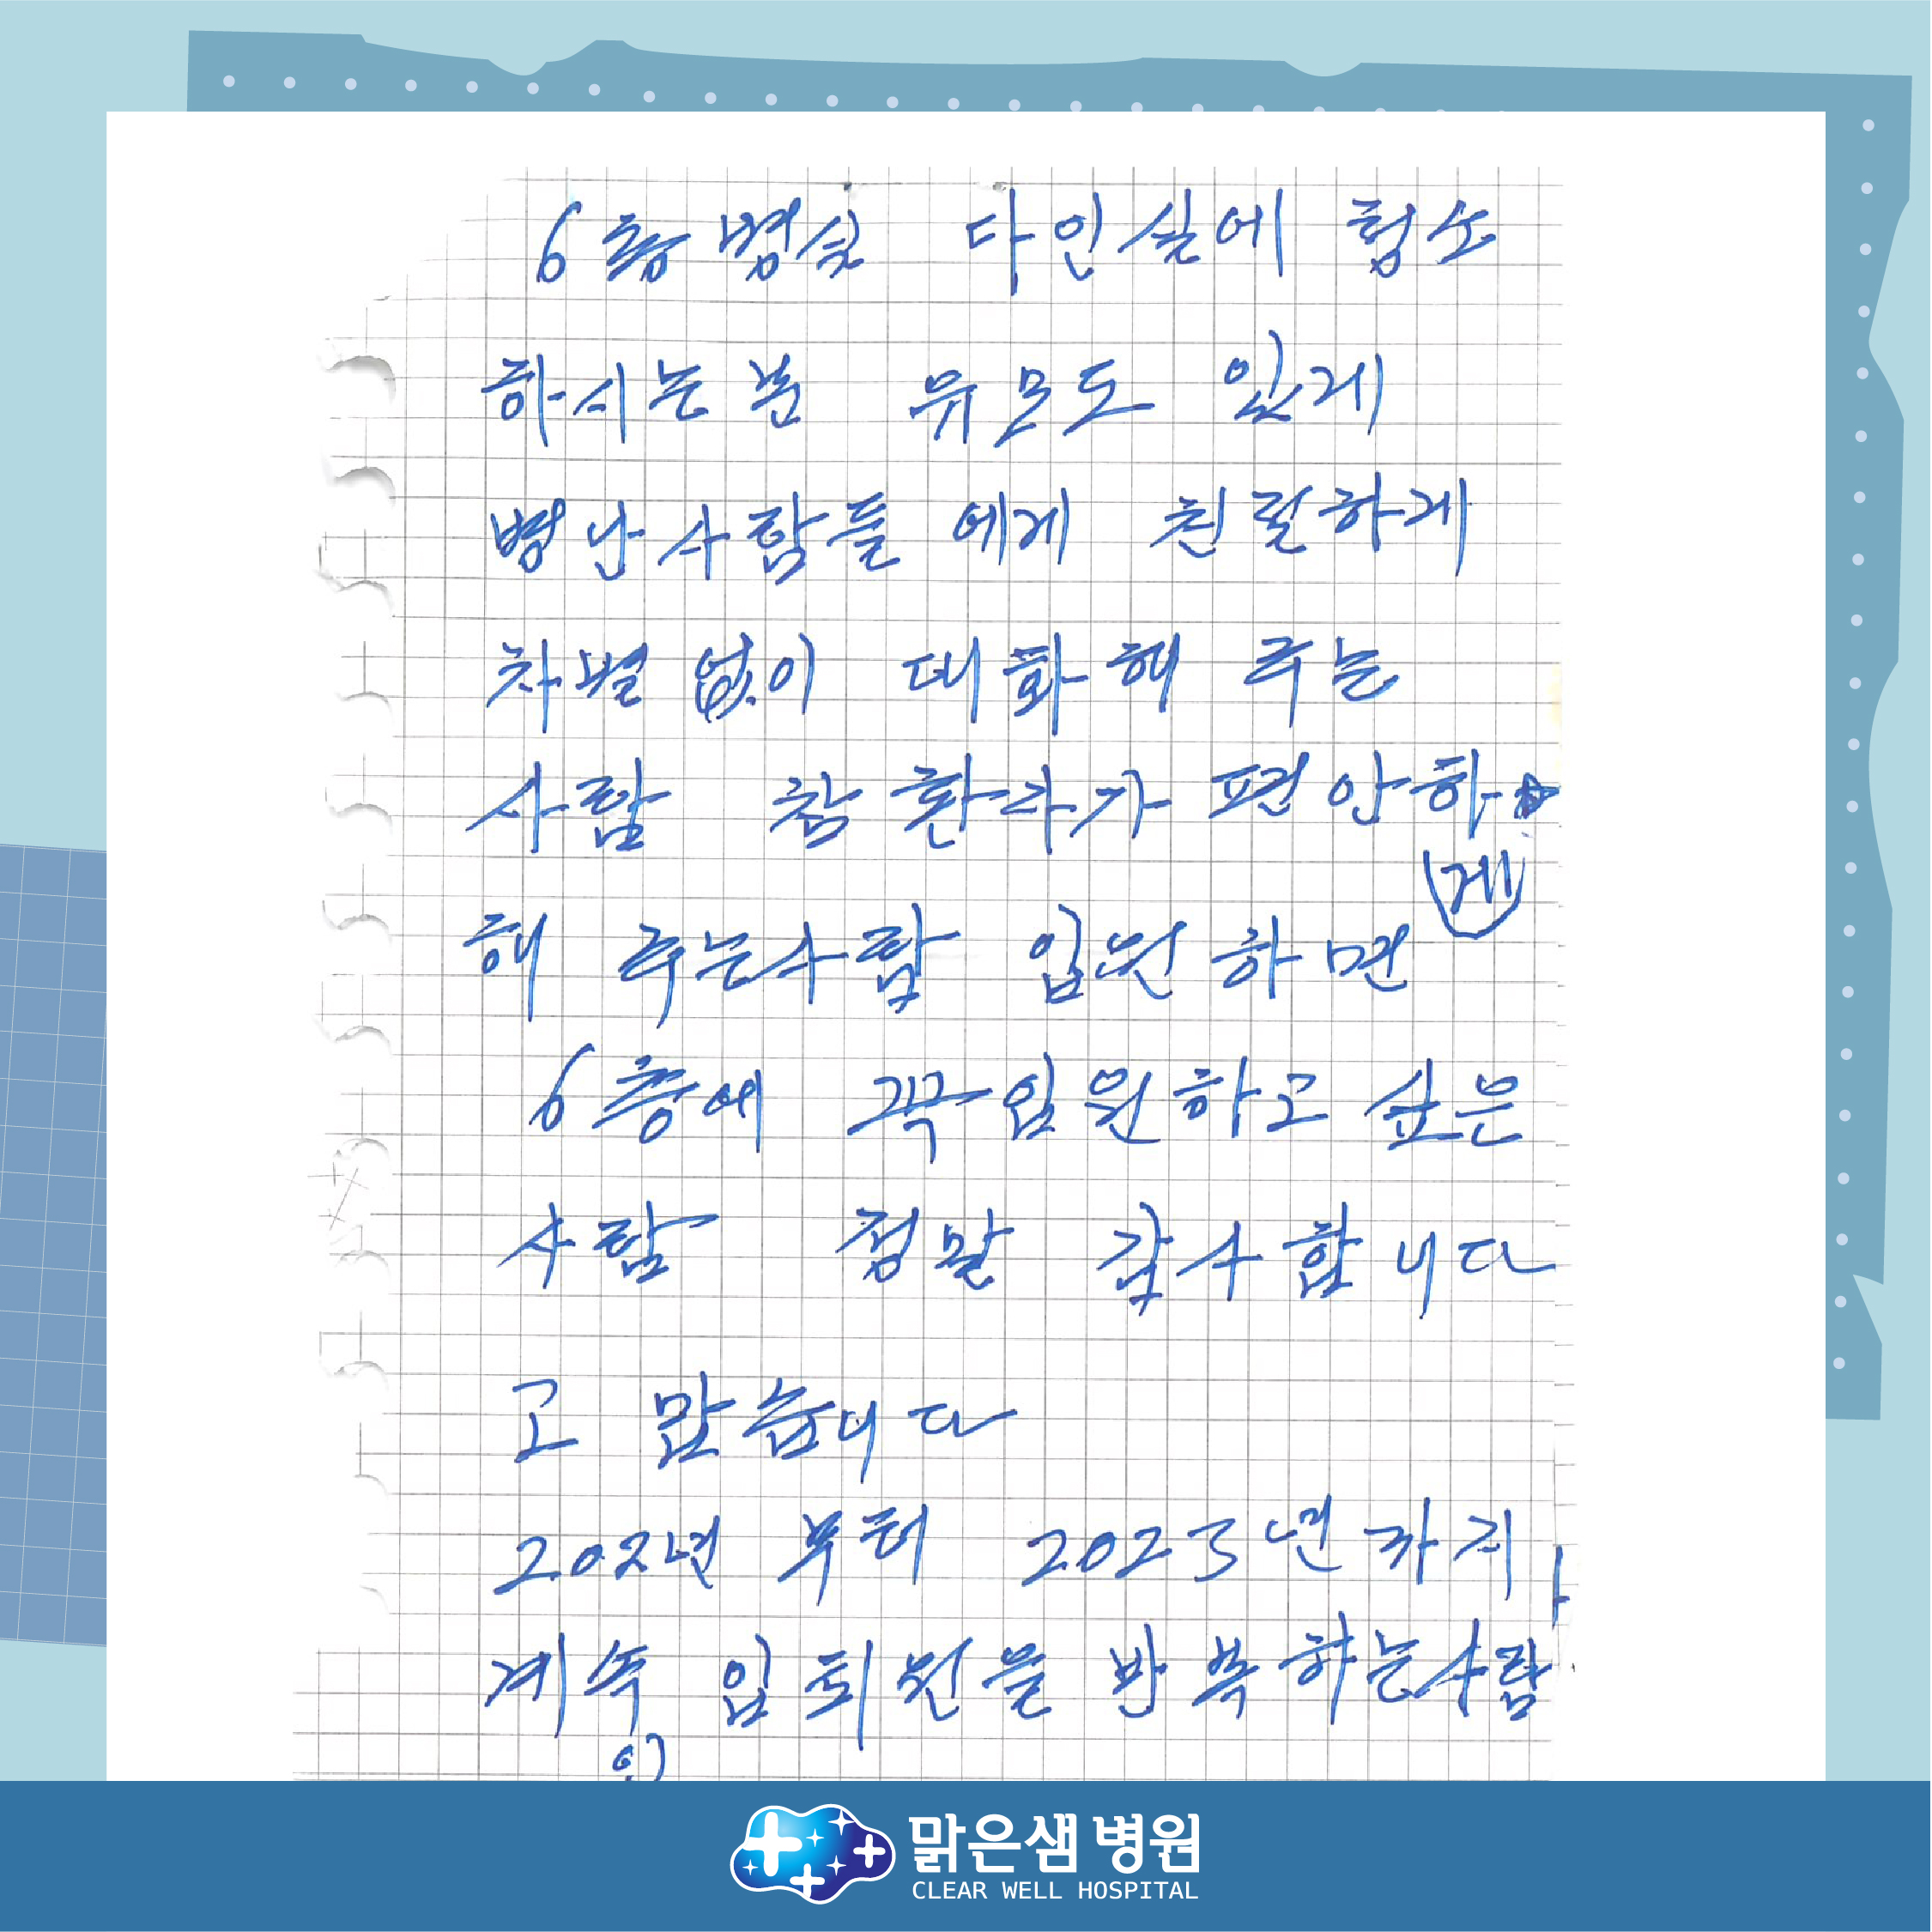 6층병실 다인실에 청소
하시는분 유모도 있게
병난사람들 에게 친절하게
차별 없이 대화해 주는
사람 참 환자가 편안하
게
해 주는사람 입원하면
6층에 꼭 입원하고 싶은
사람 정말 감사합니다
고맙습니다
202년 부터 2023년까지
계속 입퇴원을 반복하는사람
맑은샘병원
CLEAR WELL HOSPITAL